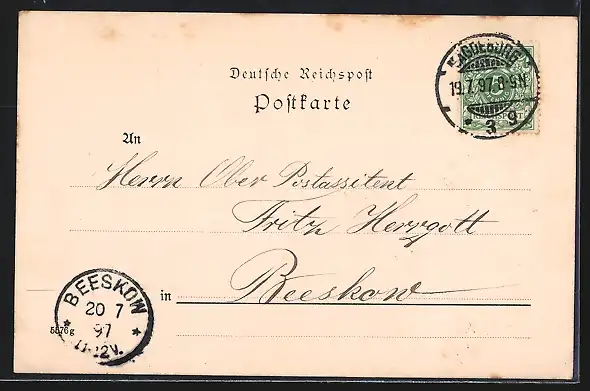 Deutsche Reichspost
Postkarte
MAGDEBURG
19.7.97.8-9N
* 3 g
An
Herrn Ober Postassitent
Fritz Herrgott
in Beeskow
BEESKOW
20 7
97
11-12V.
5576g